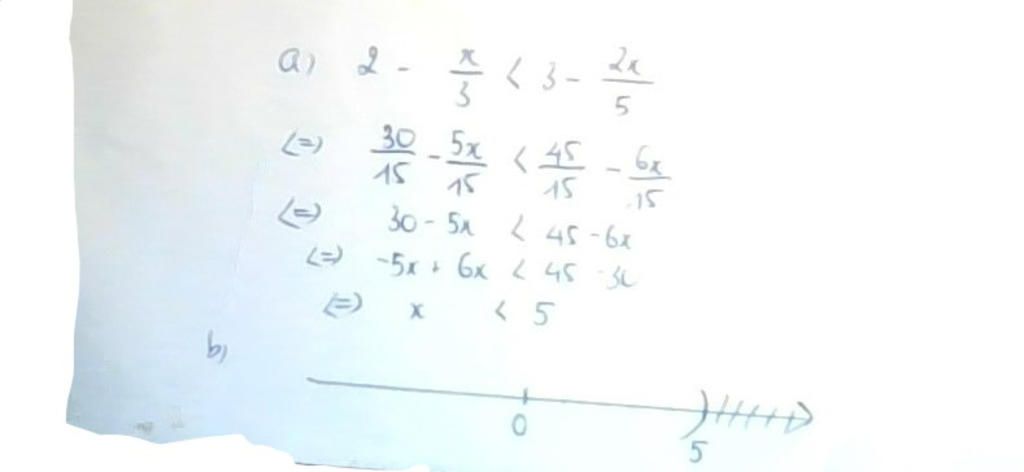 a) 2 - x/3 < 3 - 2x/5
<=> 30/15 - 5x/15 < 45/15 - 6x/15
<=> 30 - 5x < 45 - 6x
<=> -5x + 6x < 45 - 30
<=> x < 5
b)
0
5